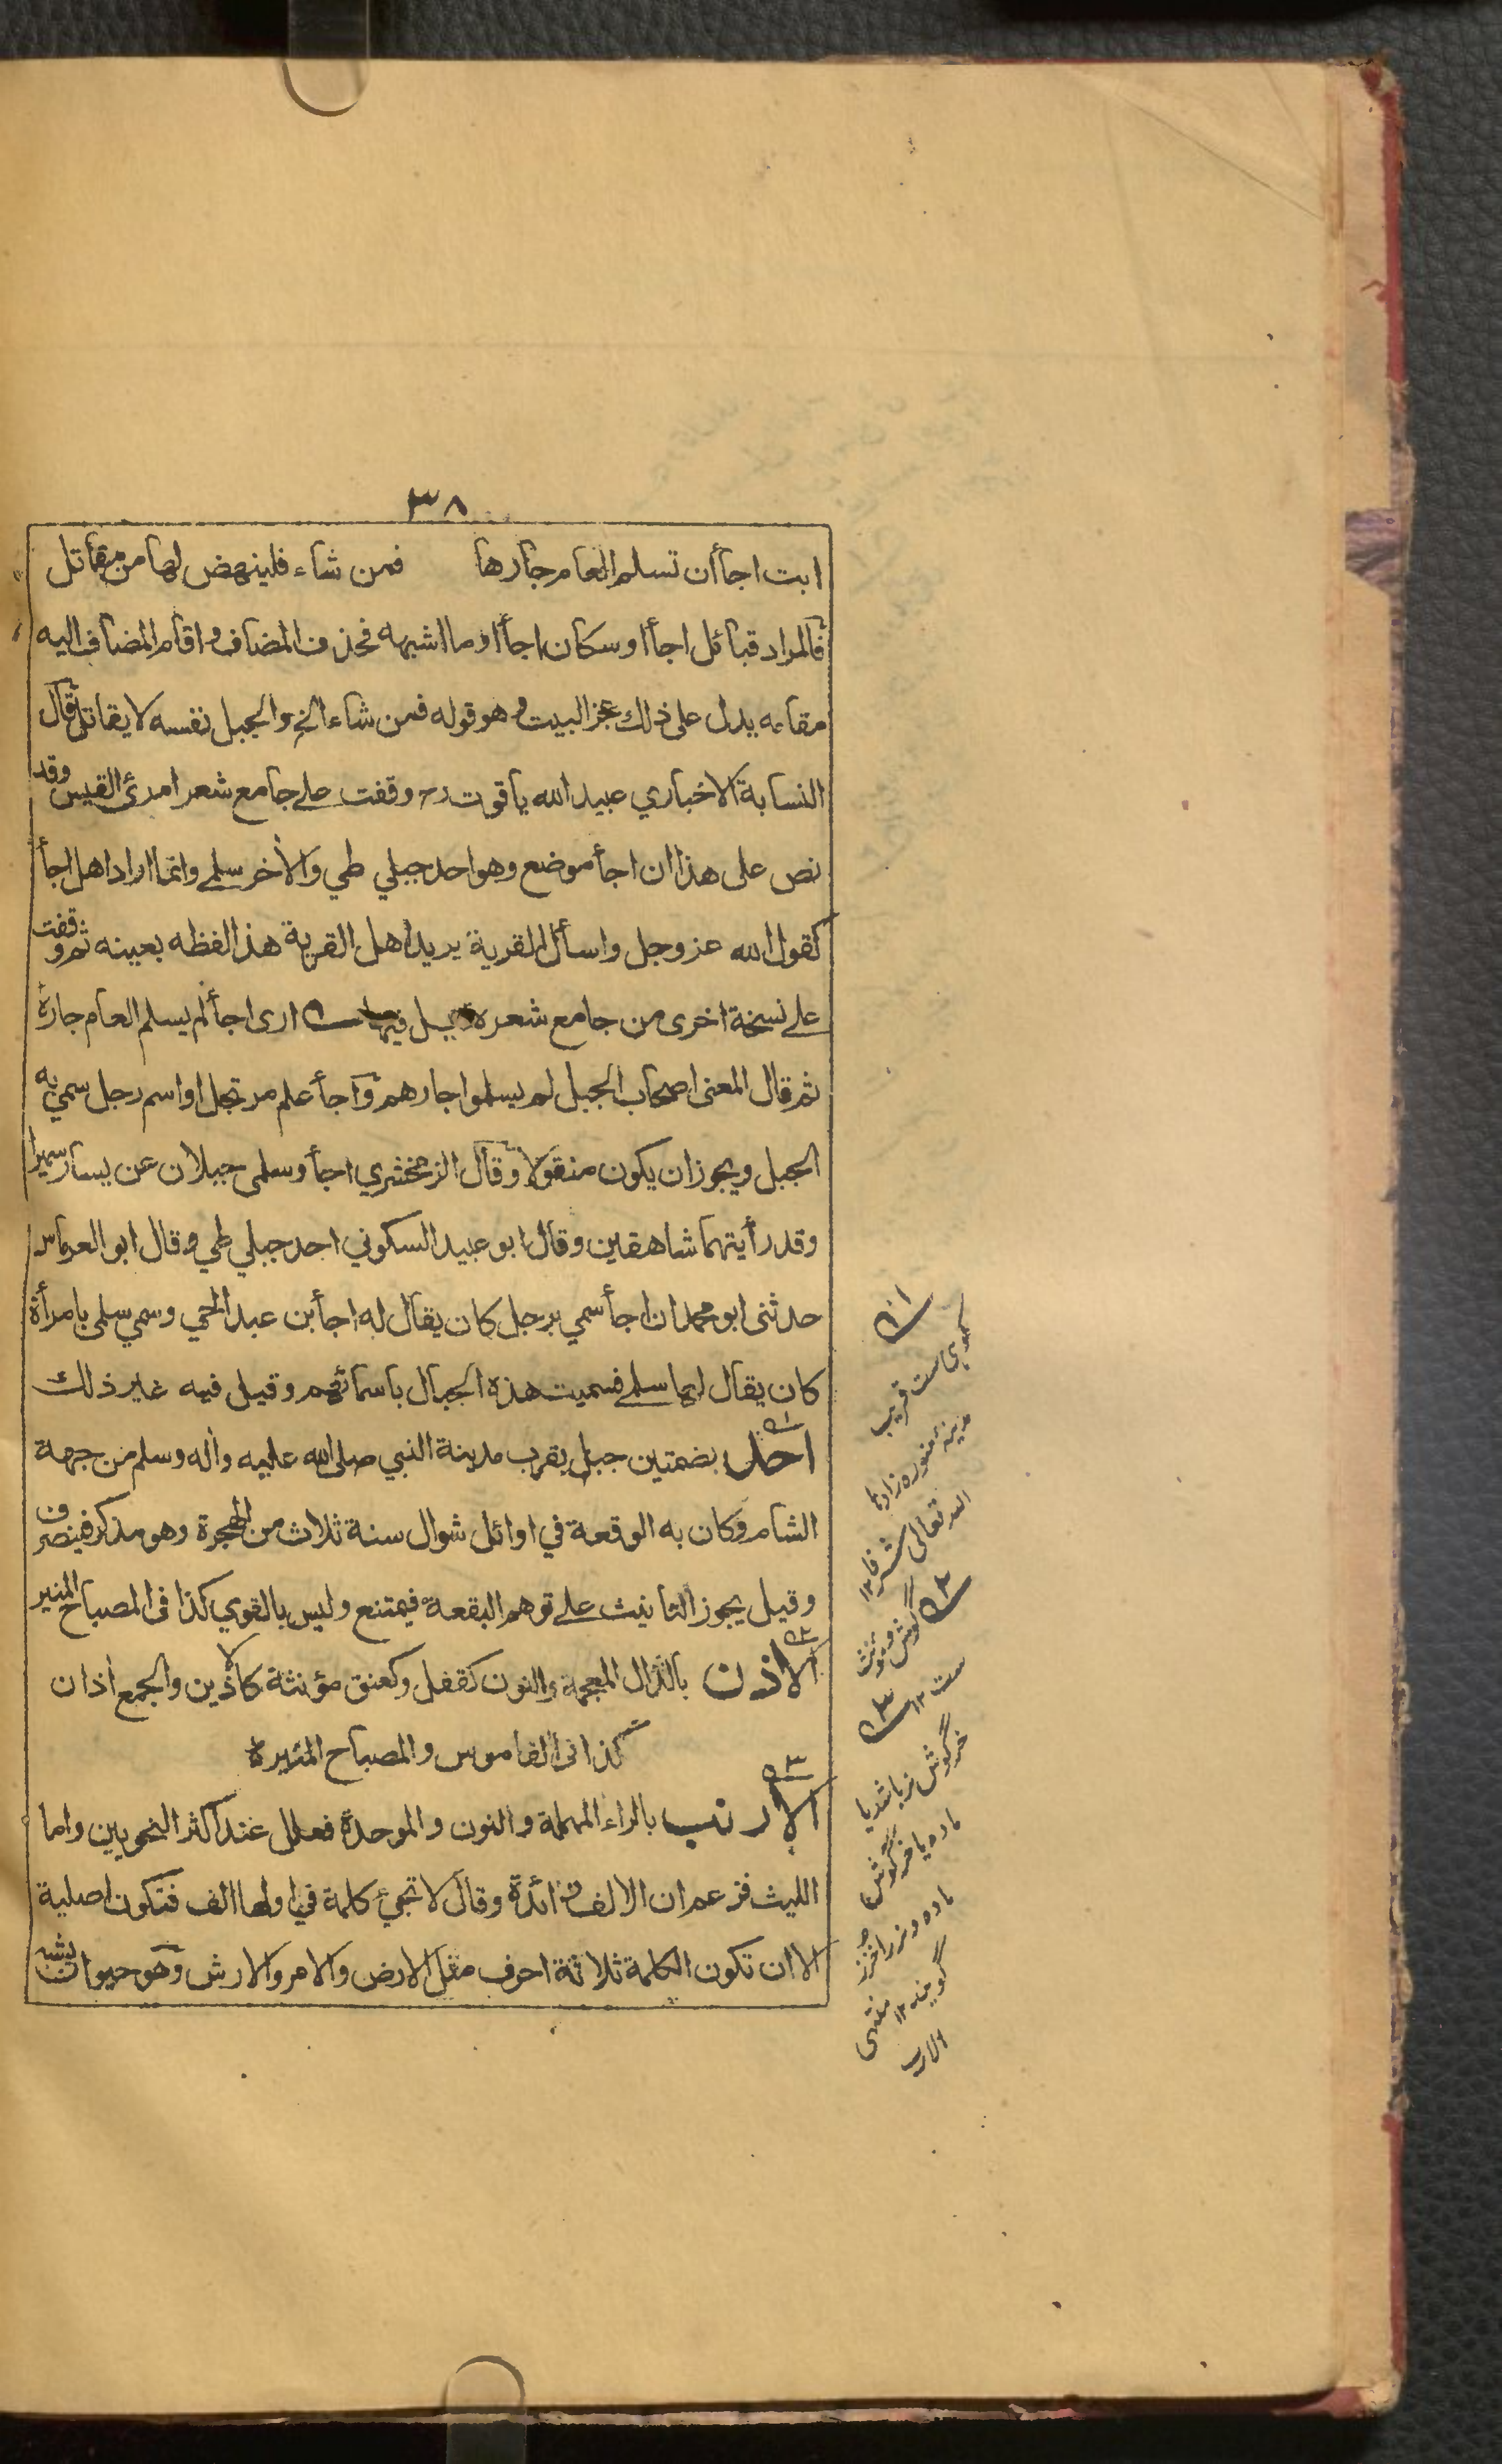 ٣٨
ابت اجأ أن تسلم العام جارها فمن شاء فلينهض لها من مقاتل
فالمراد قبائل اجأ او سكان اجأ او ما اشبهه فحذف المضاف واقام المضاف اليه
مقامه يدل على ذلك عجز البيت وهو قوله فمن شاء الخ والجبل نفسه لا يقاتل قال
النسابة الاخباري عبيد الله ياقوت رح وقفت على جامع شعر امرئ القيس وقد
نص على هذا ان اجأ موضع وهو احد جبلي طي والاخر سلمى وانما اراد اهل اجأ
كقول الله عز وجل واسأل القرية يريد اهل القرية هذا لفظه بعينه ثم وقفت
على نسخة اخرى من جامع شعره قيل فيها ارى اجأ لم يسلم العام جاره
ثم قال المعنى اصحاب الجبل لم يسلموا جارهم وآجأ علم مرتجل او اسم رجل سمي به
الجبل ويجوز ان يكون منقولا وقال الزمخشري اجأ وسلمى جبلان عن يسار سميرا
وقد رأيتهما شاهقين وقال ابو عبيد السكوني احد جبلي طي وقال ابو العرماس
حدثنى ابو محمد ان اجأ سمي برجل كان يقال له اجأ بن عبد الحي وسمي سلمى بامرأة
كان يقال لها سلمى فسميت هذه الجبال باسمائهم وقيل فيه غير ذلك
احد بضمتين جبل بقرب مدينة النبي صلى الله عليه واله وسلم من جهة
الشام وكان به الوقعة في اوائل شوال سنة ثلاث من الهجرة وهو مذكر فينصرف
وقيل يجوز التانيث على توهم البقعة فيمتنع وليس بالقوي كذا فى المصباح المنير
الاذن بالذال المعجمة والنون كقفل وكعنق مؤنثة كالاذين والجمع اذان
كذا فى القاموس والمصباح المنيرة
الارنب بالراء المهملة والنون والموحدة فعلل عند اكثر النحويين واما
الليث فزعم ان الالف زائدة وقال لا تجئ كلمة في اولها الف فتكون اصلية
الا ان تكون الكلمة ثلاثة احرف مثل الارض والامر والارش وهو حيوان يشبه
١
كوهى ست قريب
مدينه منوره زادها
الله تعالى شرفا ١٢
٢
گوش ومؤنث
ست ١٢
٣
خرگوش نر باشد يا
ماده يا خرگوش
ماده ونر را خزز
گويند ١٢ منتهى
الارب